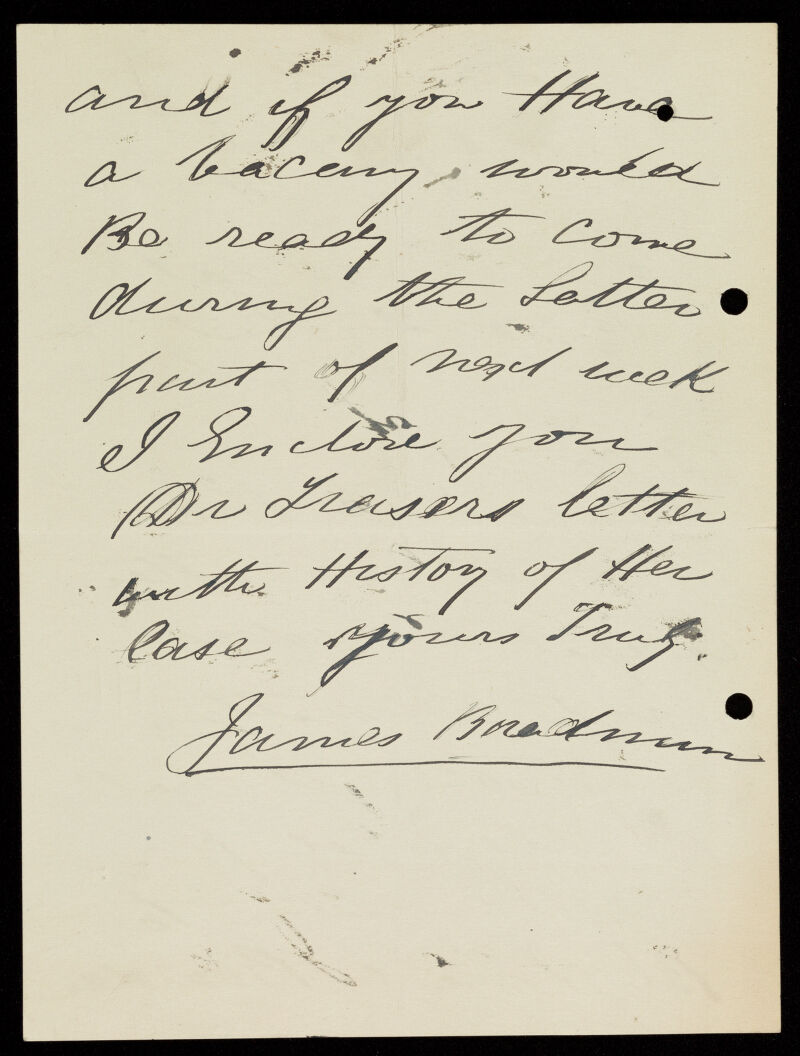 and if you Have
a vaceny would
Be ready to come
during the latter
part of next week
I Enclose you
Dr Frasers letter
with History of Her
Case yours Truly.
James Boadman